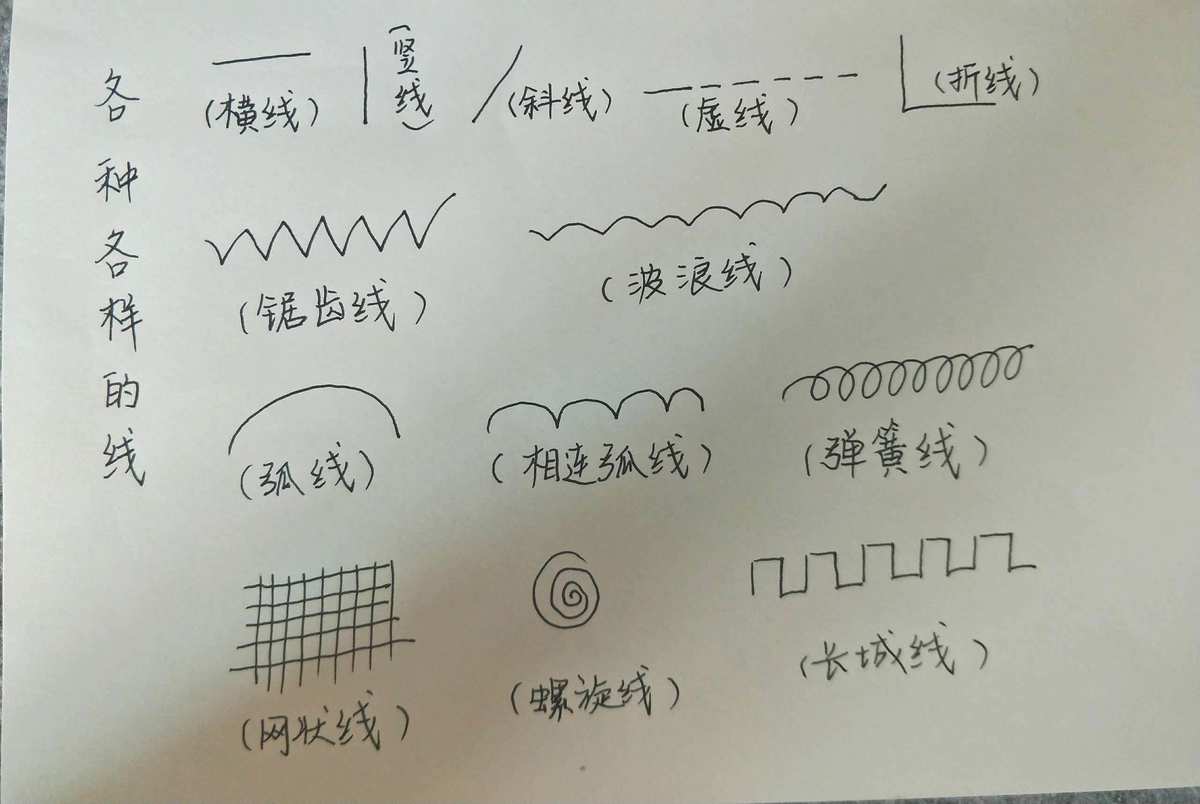 各种各样的线
(横线)
(竖线)
(斜线)
(虚线)
(折线)
(锯齿线)
(波浪线)
(弧线)
(相连弧线)
(弹簧线)
(网状线)
(螺旋线)
(长城线)